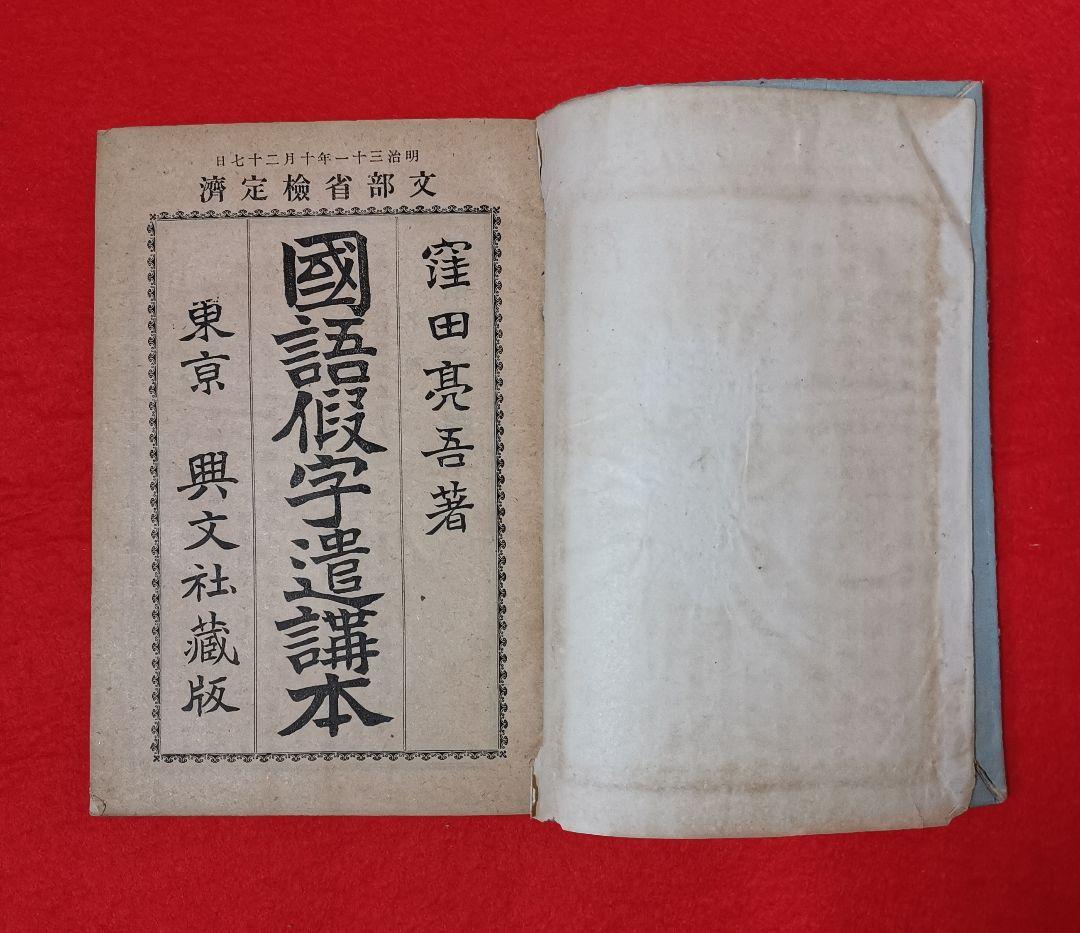 明治三十一年十月二十七日
文部省檢定濟
窪田亮吾著
國語假字遣講本
東京 興文社藏版